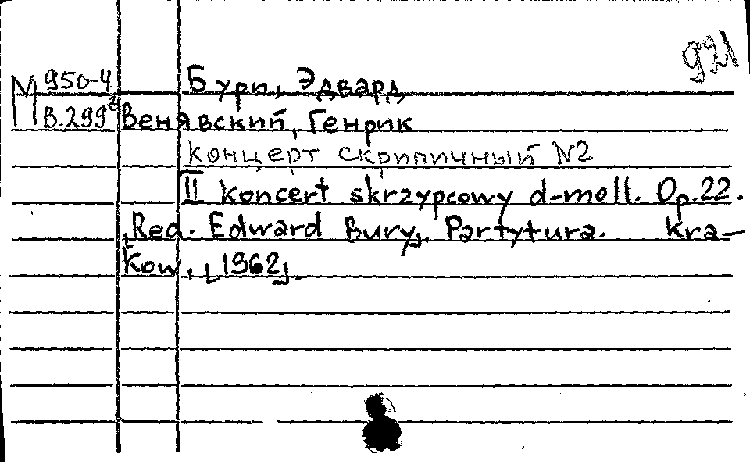 921
М 950-4 Бури, Эдвард
В.299² Венявский, Генрик
Концерт скрипичный №2
II koncert skrzypcowy d-moll. Op.22.
Red. Edward Bury. Partytura. Kra-
kow, [1962].